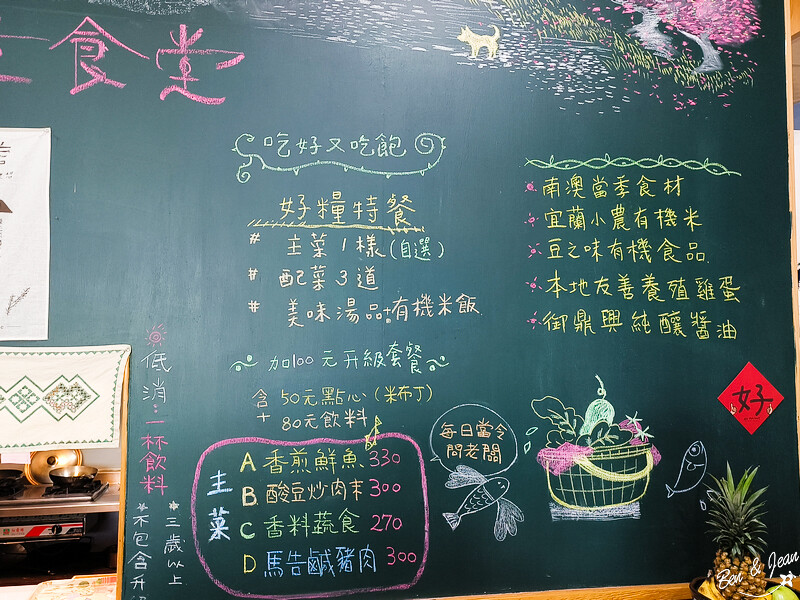 食堂
吃好又吃飽
好糧特餐
# 主菜1樣(自選)
# 配菜3道
# 美味湯品+有機米飯
加100元升級套餐
含50元點心(米布丁)
+80元飲料
主菜
A 香煎鮮魚 330
B 酸豆炒肉末 300
C 香料蔬食 270
D 馬告鹹豬肉 300
每日當令
問老闆
南澳當季食材
宜蘭小農有機米
豆之味有機食品
本地友善養殖雞蛋
御鼎興純釀醬油
好
低消:一杯飲料
*三歲以上
*不包含升
Ben & Jean